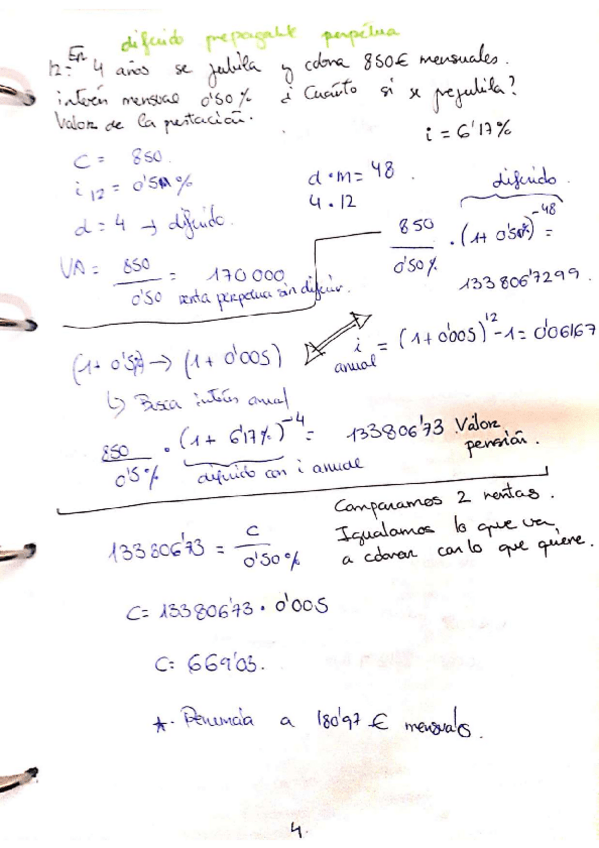 diferido prepagable perpétua
12.- En 4 años se jubila y cobra 850€ mensuales.
interés mensual 0'50% ¿Cuánto si se prejubila?
Valor de la prestación.
i = 6'17%
C = 850.
i12 = 0'50%
d = 4 → diferido.
d·m = 48
4·12
diferido.
850/0'50% · (1+0'50%)^-48 =
133806'7299.
VA = 850/0'50 = 170000
renta perpetua sin diferir.
(1+0'50%) → (1+0'005)
↳ Busca interés anual
i anual = (1+0'005)^12 - 1 = 0'06167
850/0'5% · (1+6'17%)^-4 = 133806'73 Valor pensión.
diferido con i anual
Comparamos 2 rentas.
Igualamos lo que va
a cobrar con lo que quiere.
133806'73 = C/0'50%
C = 133806'73 · 0'005
C = 669'03.
★. Renuncia a 180'97 € mensuales.
4.